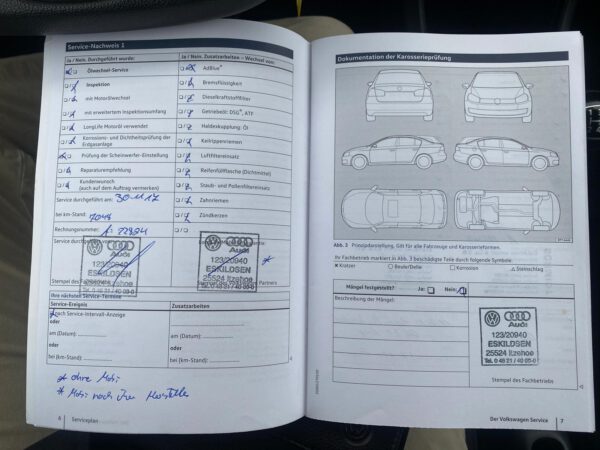 Service-Nachweis 1
Ja / Nein. Durchgeführt wurde:
Ja / Nein. Zusatzarbeiten – Wechsel von:
Ölwechsel-Service
AdBlue®
Inspektion
Bremsflüssigkeit
mit Motorölwechsel
Dieselkraftstofffilter
mit erweitertem Inspektionsumfang
Getriebeöl: DSG®, ATF
LongLife Motoröl verwendet
Haldexkupplung: Öl
Korrosions- und Dichtheitsprüfung der
Erdgasanlage
Keilrippenriemen
Prüfung der Scheinwerfer-Einstellung
Luftfiltereinsatz
Reparaturempfehlung
Reifenfüllflasche (Dichtmittel)
Kundenwunsch
(auch auf dem Auftrag vermerken)
Staub- und Pollenfiltereinsatz
Service durchgeführt am: 30.11.17
Zahnriemen
bei km-Stand:
Zündkerzen
Rechnungsnummer:
Service durchgeführt
Audi
123/20940
ESKILDSEN
25524 Itzehoe
Tel. 0 48 21 / 40 05-0
Stempel des
Audi
123/20940
ESKILDSEN
25524 Itzehoe
Tel. 0 48 21 / 40 05-0
Partners
Ihre nächsten Service-Termine
Service-Ereignis
Zusatzarbeiten
nach Service-Intervall-Anzeige
oder
am (Datum):
am (Datum):
oder
oder
bei (km-Stand):
bei (km-Stand):
* ohne Mobi
* Mobi nach Ihrer Hersteller
6 Serviceplan
Dokumentation der Karosserieprüfung
Abb. 3 Prinzipdarstellung. Gilt für alle Fahrzeuge und Karosserieformen.
Ihr Fachbetrieb markiert in Abb. 3 beschädigte Teile durch folgende Symbole:
× Kratzer ○ Beule/Delle □ Korrosion △ Steinschlag
Mängel festgestellt? Ja: Nein:
Beschreibung der Mängel:
Audi
123/20940
ESKILDSEN
25524 Itzehoe
Tel. 0 48 21 / 40 05-0
Stempel des Fachbetriebs
Der Volkswagen Service 7